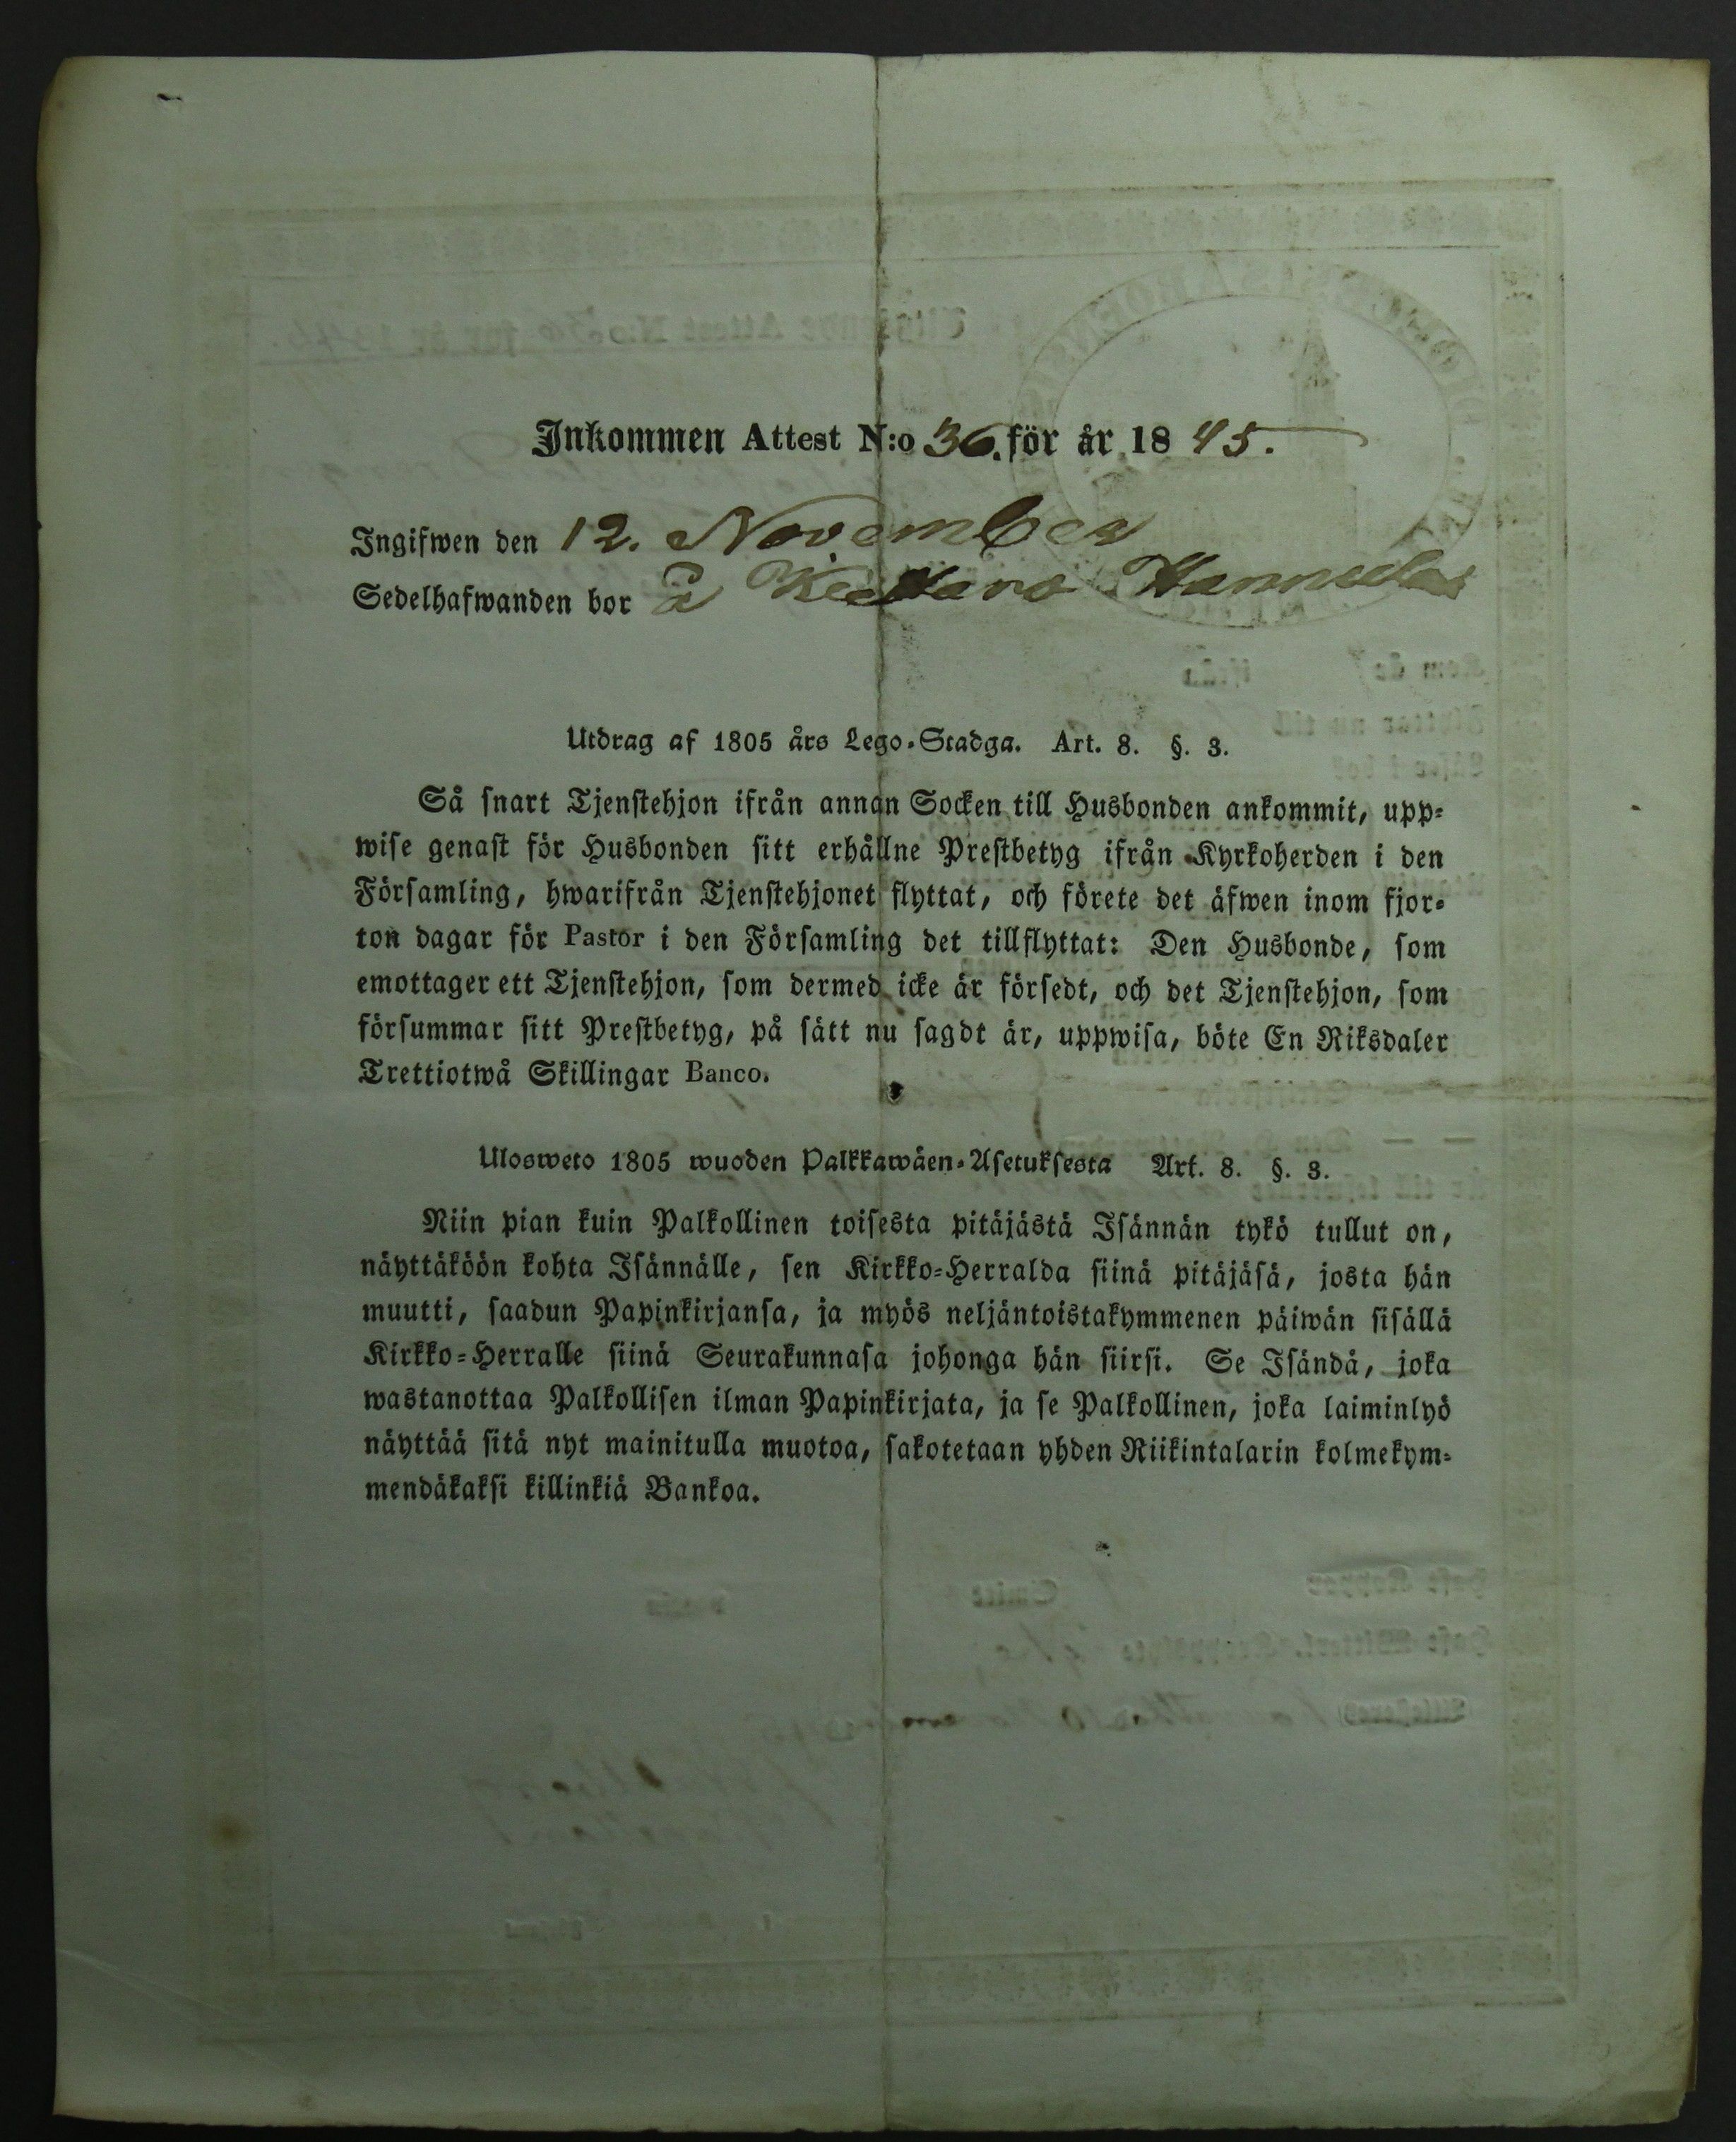 Inkommen Attest N:o 36. för år 1845.
Ingifwen den 12. November
Sedelhafwanden bor å Hannula
Utdrag af 1805 års Lego-Stadga. Art. 8. §. 3.
Så snart Tjenstehjon ifrån annan Socken till Husbonden ankommit, upp-
wise genast för Husbonden sitt erhållne Prestbetyg ifrån Kyrkoherden i den
Församling, hwarifrån Tjenstehjonet flyttat, och förete det äfwen inom fjor-
ton dagar för Pastor i den Församling det tillflyttat: Den Husbonde, som
emottager ett Tjenstehjon, som dermed icke är försedt, och det Tjenstehjon, som
försummar sitt Prestbetyg, på sätt nu sagdt är, uppwisa, böte En Riksdaler
Trettiotwå Skillingar Banco.
Ulosweto 1805 wuoden Palkkawäen-Asetuksesta Art. 8. §. 3.
Niin pian kuin Palkollinen toisesta pitäjästä Isännän tykö tullut on,
näyttäköön kohta Isännälle, sen Kirkko-Herralda siinä pitäjäsä, josta hän
muutti, saadun Papinkirjansa, ja myös neljäntoistakymmenen päiwän sisällä
Kirkko-Herralle siinä Seurakunnasa johonga hän siirsi. Se Isändä, joka
wastanottaa Palkollisen ilman Papinkirjata, ja se Palkollinen, joka laiminlyö
näyttää sitä nyt mainitulla muotoa, sakotetaan yhden Riikintalarin kolmekym-
mendäkaksi killinkiä Bankoa.